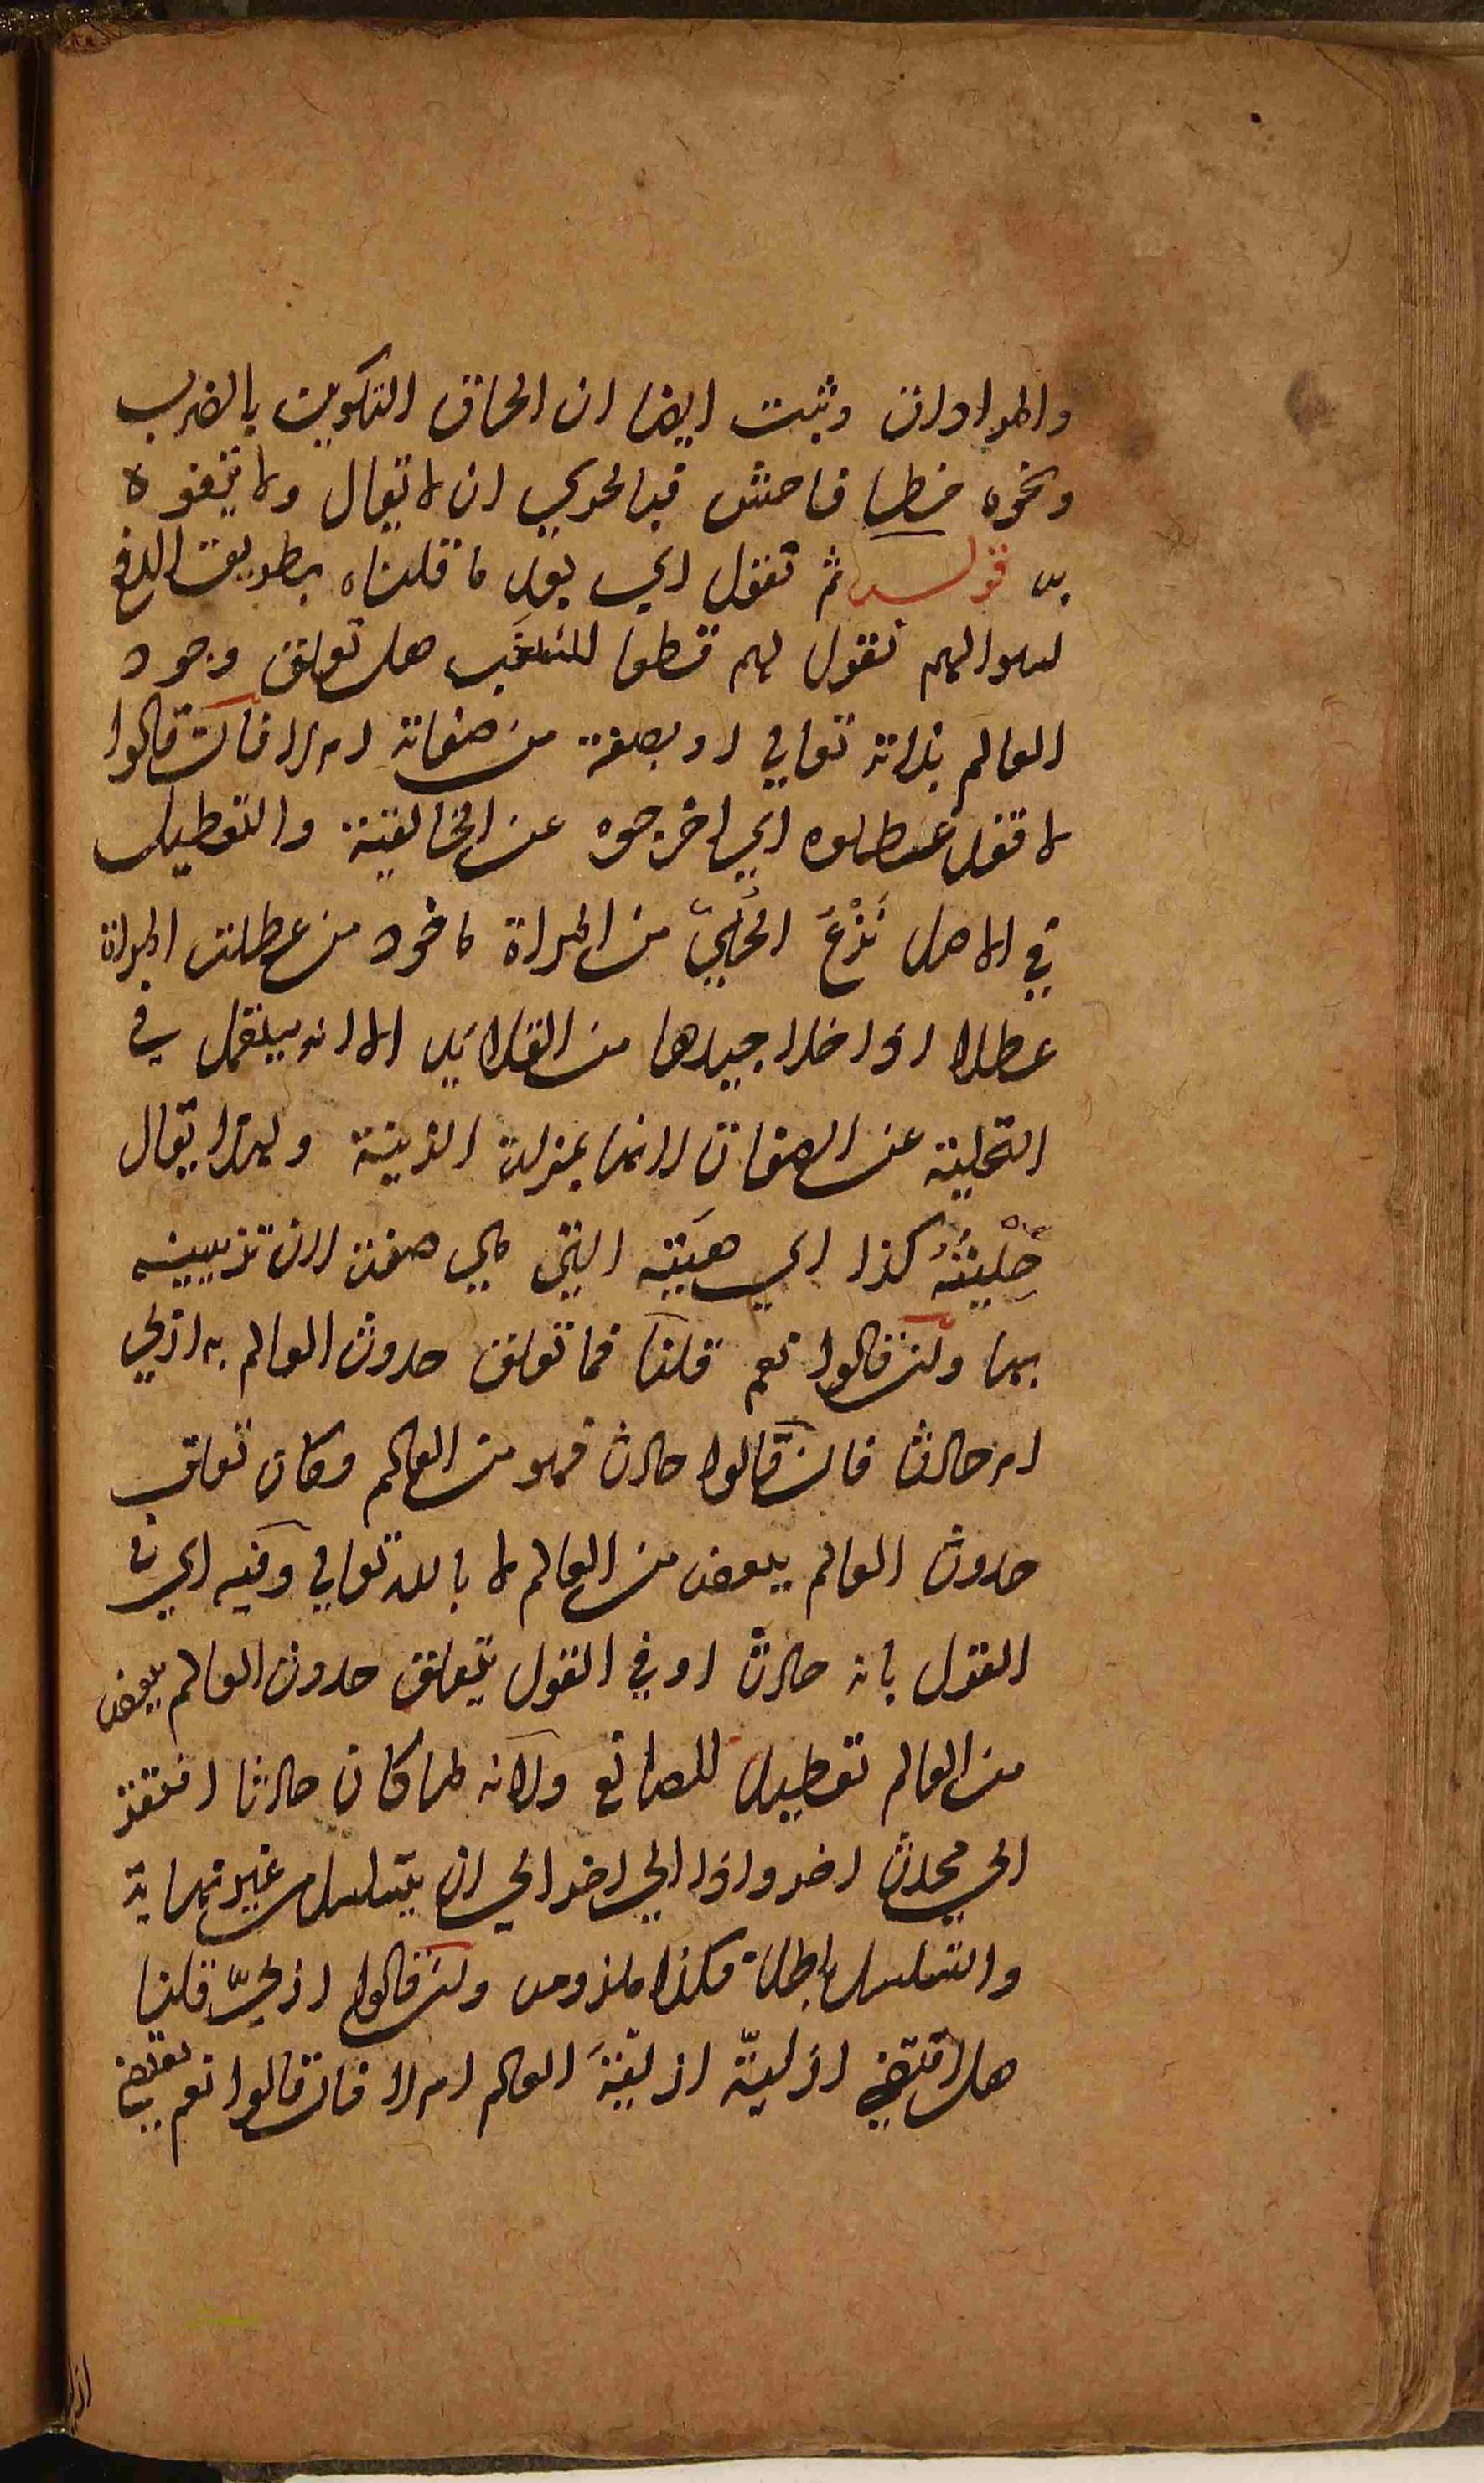 والمرادات وثبت ايضا ان الحاق التكوين بالضرب
ونحوه خطا فاحش فبالحري ان لا يقال ولا يتفوه
به قوله ثم تقول اي بعد ما قلناه بطريق الدفع
لسوالهم نقول لهم قطعا للشغب هل تعلق وجود
العالم بذاته تعالى او بصفة من صفاته ام لا فان قالوا
لا فقد عطلوه اي اخرجوه عن الخالقية والتعطيل
في الاصل نَزْعُ الحُلِيّ من المراة ماخوذ من عطلت المراة
عطلا اذا خلا جيدها من القلائد الا انه يستعمل في
التخلية عن الصفات لانها بمنزلة الزينة ولهذا يقال
حِلْيَتُهُ كذا اي هيئته التي هي صفة لان تزيينه
بها ولئن قالوا نعم قلنا فما تعلق حدوث العالم به ازلي
ام حادث فان قالوا حادث فهو من العالم وكان تعلق
حدوث العالم ببعض من العالم لا بالله تعالى وفيه اي في
القول بانه حادث او في القول بتعلق حدوث العالم ببعض
من العالم تعطيل للصانع ولانه لما كان حادثا افتقر
الى محدث اخر وذا الى اخر الى ان يتسلسل من غير نهاية
والتسلسل باطل فكذا ملزومه ولئن قالوا ازليّ قلنا
هل اقتضي ازليّة ازليّةَ العالم ام لا فان قالوا نعم يقتضي